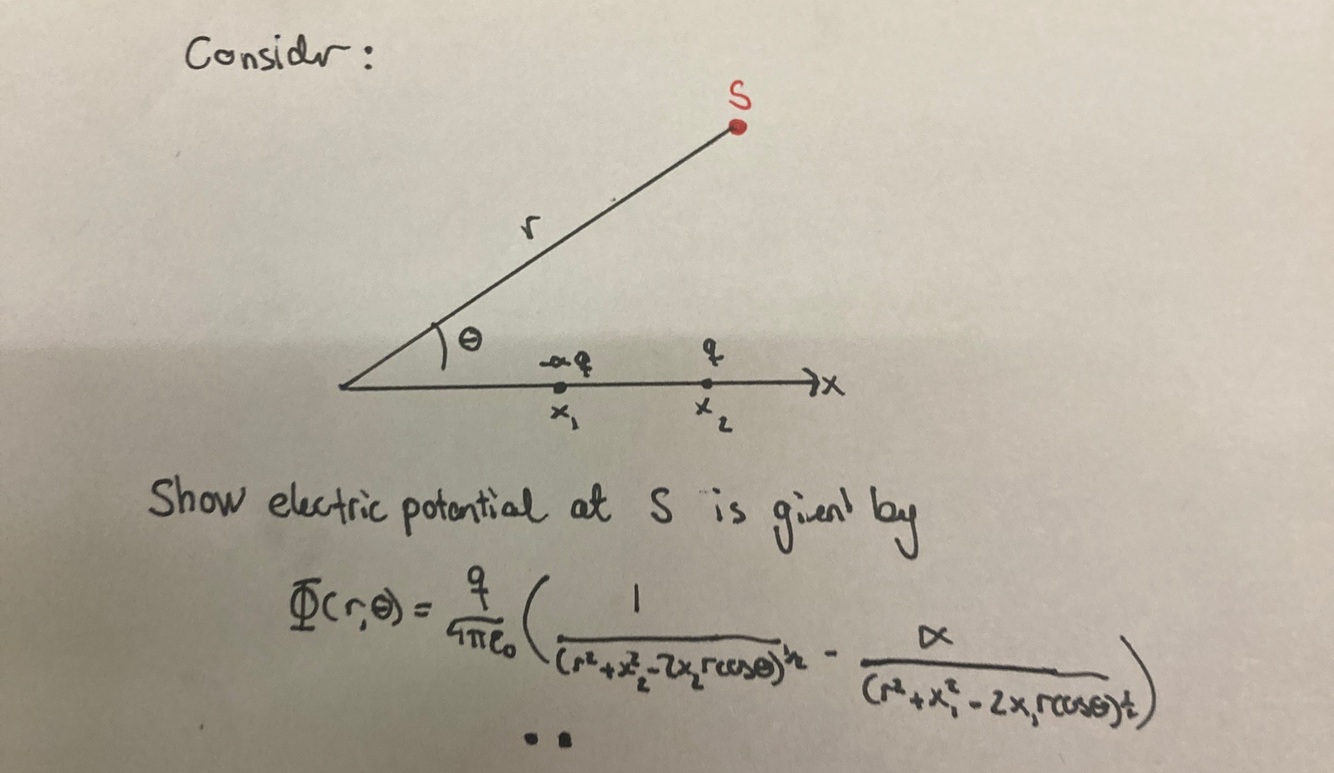 Consider:
S
r
θ
-αq
q
x₁
x₂
x
Show electric potential at S is given by
Φ(r,θ) = q/4πε₀ ( 1/(r²+x₂²-2x₂rcosθ)^½ - α/(r²+x₁²-2x₁rcosθ)^½ )